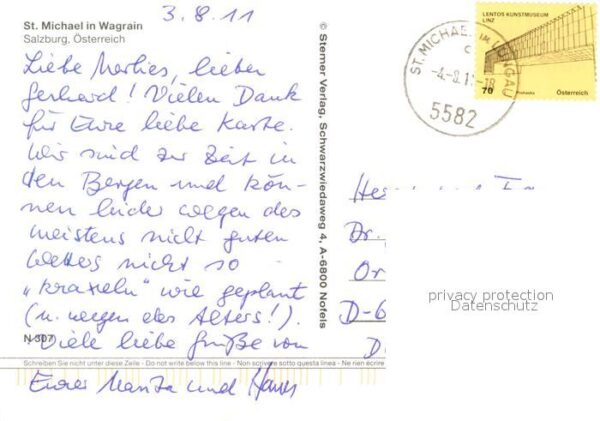 3.8.11
St. Michael in Wagrain
Salzburg, Österreich
Liebe Marlies, lieber
Gerhard! Vielen Dank
für Eure liebe Karte.
Wir sind zur Zeit in
den Bergen und kön-
nen leider wegen des
meistens nicht guten
Wetters nicht so
„kraxeln" wie geplant
(u. wegen des Alters!).
N 307
Viele liebe Grüße von
Schreiben Sie nicht unter diese Zeile - Do not write below this line - Non scrivere sotto questa linea - Ne rien écrire
Eurer und Hans
© Sterner Verlag, Schwarzwiedaweg 4, A-6800 Nofels
ST. MICHAEL IM LUNGAU
c
-4.-8.11-18
5582
LENTOS KUNSTMUSEUM
LINZ
70
Österreich
Dr.
D-6
D
privacy protection
Datenschutz